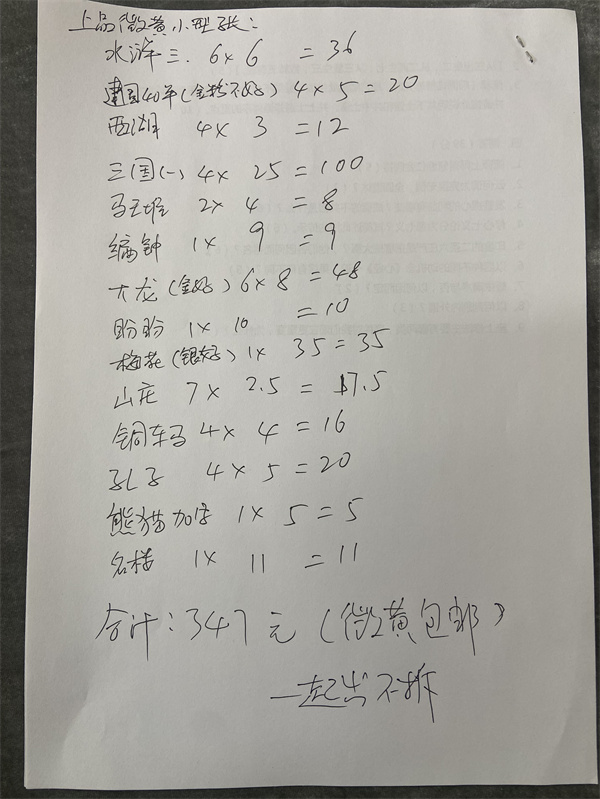 上品微黄小型张：
水浒三. 6x6 =36
建国40年(金粉不好) 4x5=20
西湖 4x 3 =12
三国(一) 4x 25=100
马王堆 2x 4 =8
编钟 1x 9 =9
大龙(金好) 6x8=48
盼盼 1x 10 =10
梅花(银好) 1x 35=35
山庄 7x 2.5 = 17.5
铜车马 4x 4 =16
孔子 4x5 =20
熊猫加字 1x 5=5
名楼 1x 11 =11
合计：347元(微黄包邮)
一起出不拆